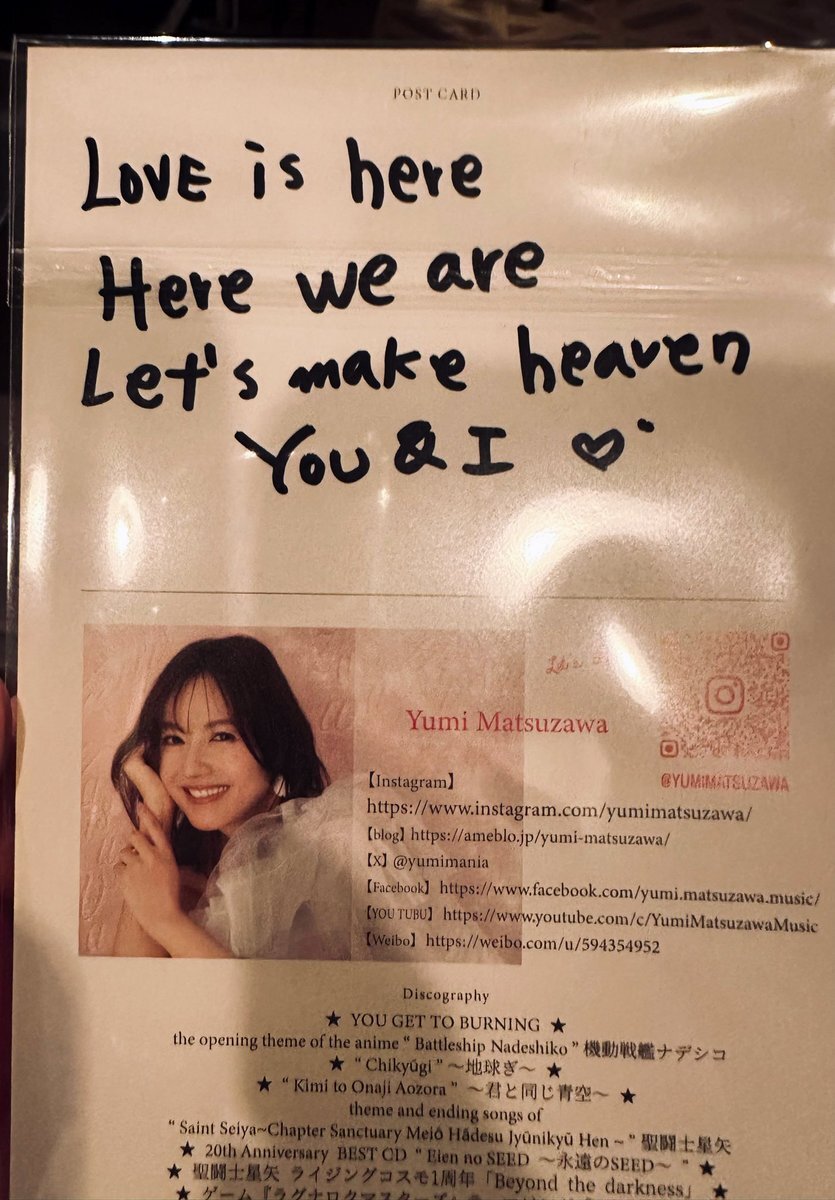 POST CARD
LOVE is here
Here we are
Let's make heaven
You & I ♡
Yumi Matsuzawa
@YUMIMATSUZAWA
【Instagram】
https://www.instagram.com/yumimatsuzawa/
【blog】https://ameblo.jp/yumi-matsuzawa/
【X】@yumimania
【Facebook】https://www.facebook.com/yumi.matsuzawa.music/
【YOU TUBU】https://www.youtube.com/c/YumiMatsuzawaMusic
【Weibo】https://weibo.com/u/594354952
Discography
★ YOU GET TO BURNING ★
the opening theme of the anime “ Battleship Nadeshiko ” 機動戦艦ナデシコ
★ “ Chikyūgi ” ～地球ぎ～ ★
★ “ Kimi to Onaji Aozora ” ～君と同じ青空～ ★
theme and ending songs of
“ Saint Seiya~Chapter Sanctuary Meiō Hādesu Jyūnikyū Hen ~ ” 聖闘士星矢
★ 20th Anniversary BEST CD “ Eien no SEED ～永遠のSEED～ ” ★
★ 聖闘士星矢 ライジングコスモ1周年「Beyond the darkness」 ★
★ ゲーム『ラグナロクマスターズ』